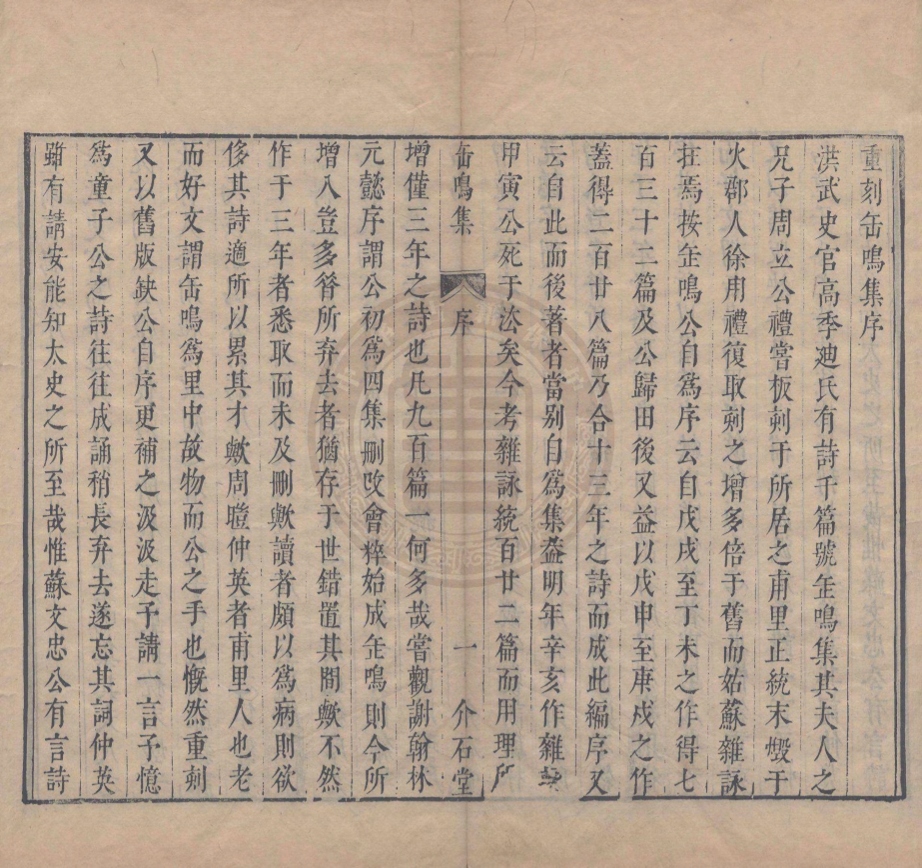 重刻缶鳴集序
洪武史官高季迪氏有詩千篇號缶鳴集其夫人之
兄子周立公禮嘗板刻于所居之甫里正統末燬于
火郡人徐用禮復取刻之增多倍于舊而姑蘇雜詠
在焉按缶鳴公自為序云自戊戌至丁未之作得七
百三十二篇及公歸田後又益以戊申至庚戌之作
葢得二百廿八篇乃合十三年之詩而成此編序又
云自此而後著者當别自為集葢明年辛亥作雜詠
甲寅公死于法矣今考雜詠統百廿二篇而用理所
缶鳴集 序 一 介石堂
增僅三年之詩也凡九百篇一何多哉嘗觀謝翰林
元懿序謂公初為四集刪改會粹始成缶鳴則今所
增入豈多昝所弃去者猶存于世錯置其間歟不然
作于三年者悉取而未及刪歟讀者頗以為病則欲
侈其詩適所以累其才歟周聰仲英者甫里人也老
而好文謂缶鳴為里中故物而公之手也慨然重刻
又以舊版缺公自序更補之汲汲走予請一言予憶
為童子公之詩往往成誦稍長弃去遂忘其詞仲英
雖有請安能知太史之所至哉惟蘇文忠公有言詩